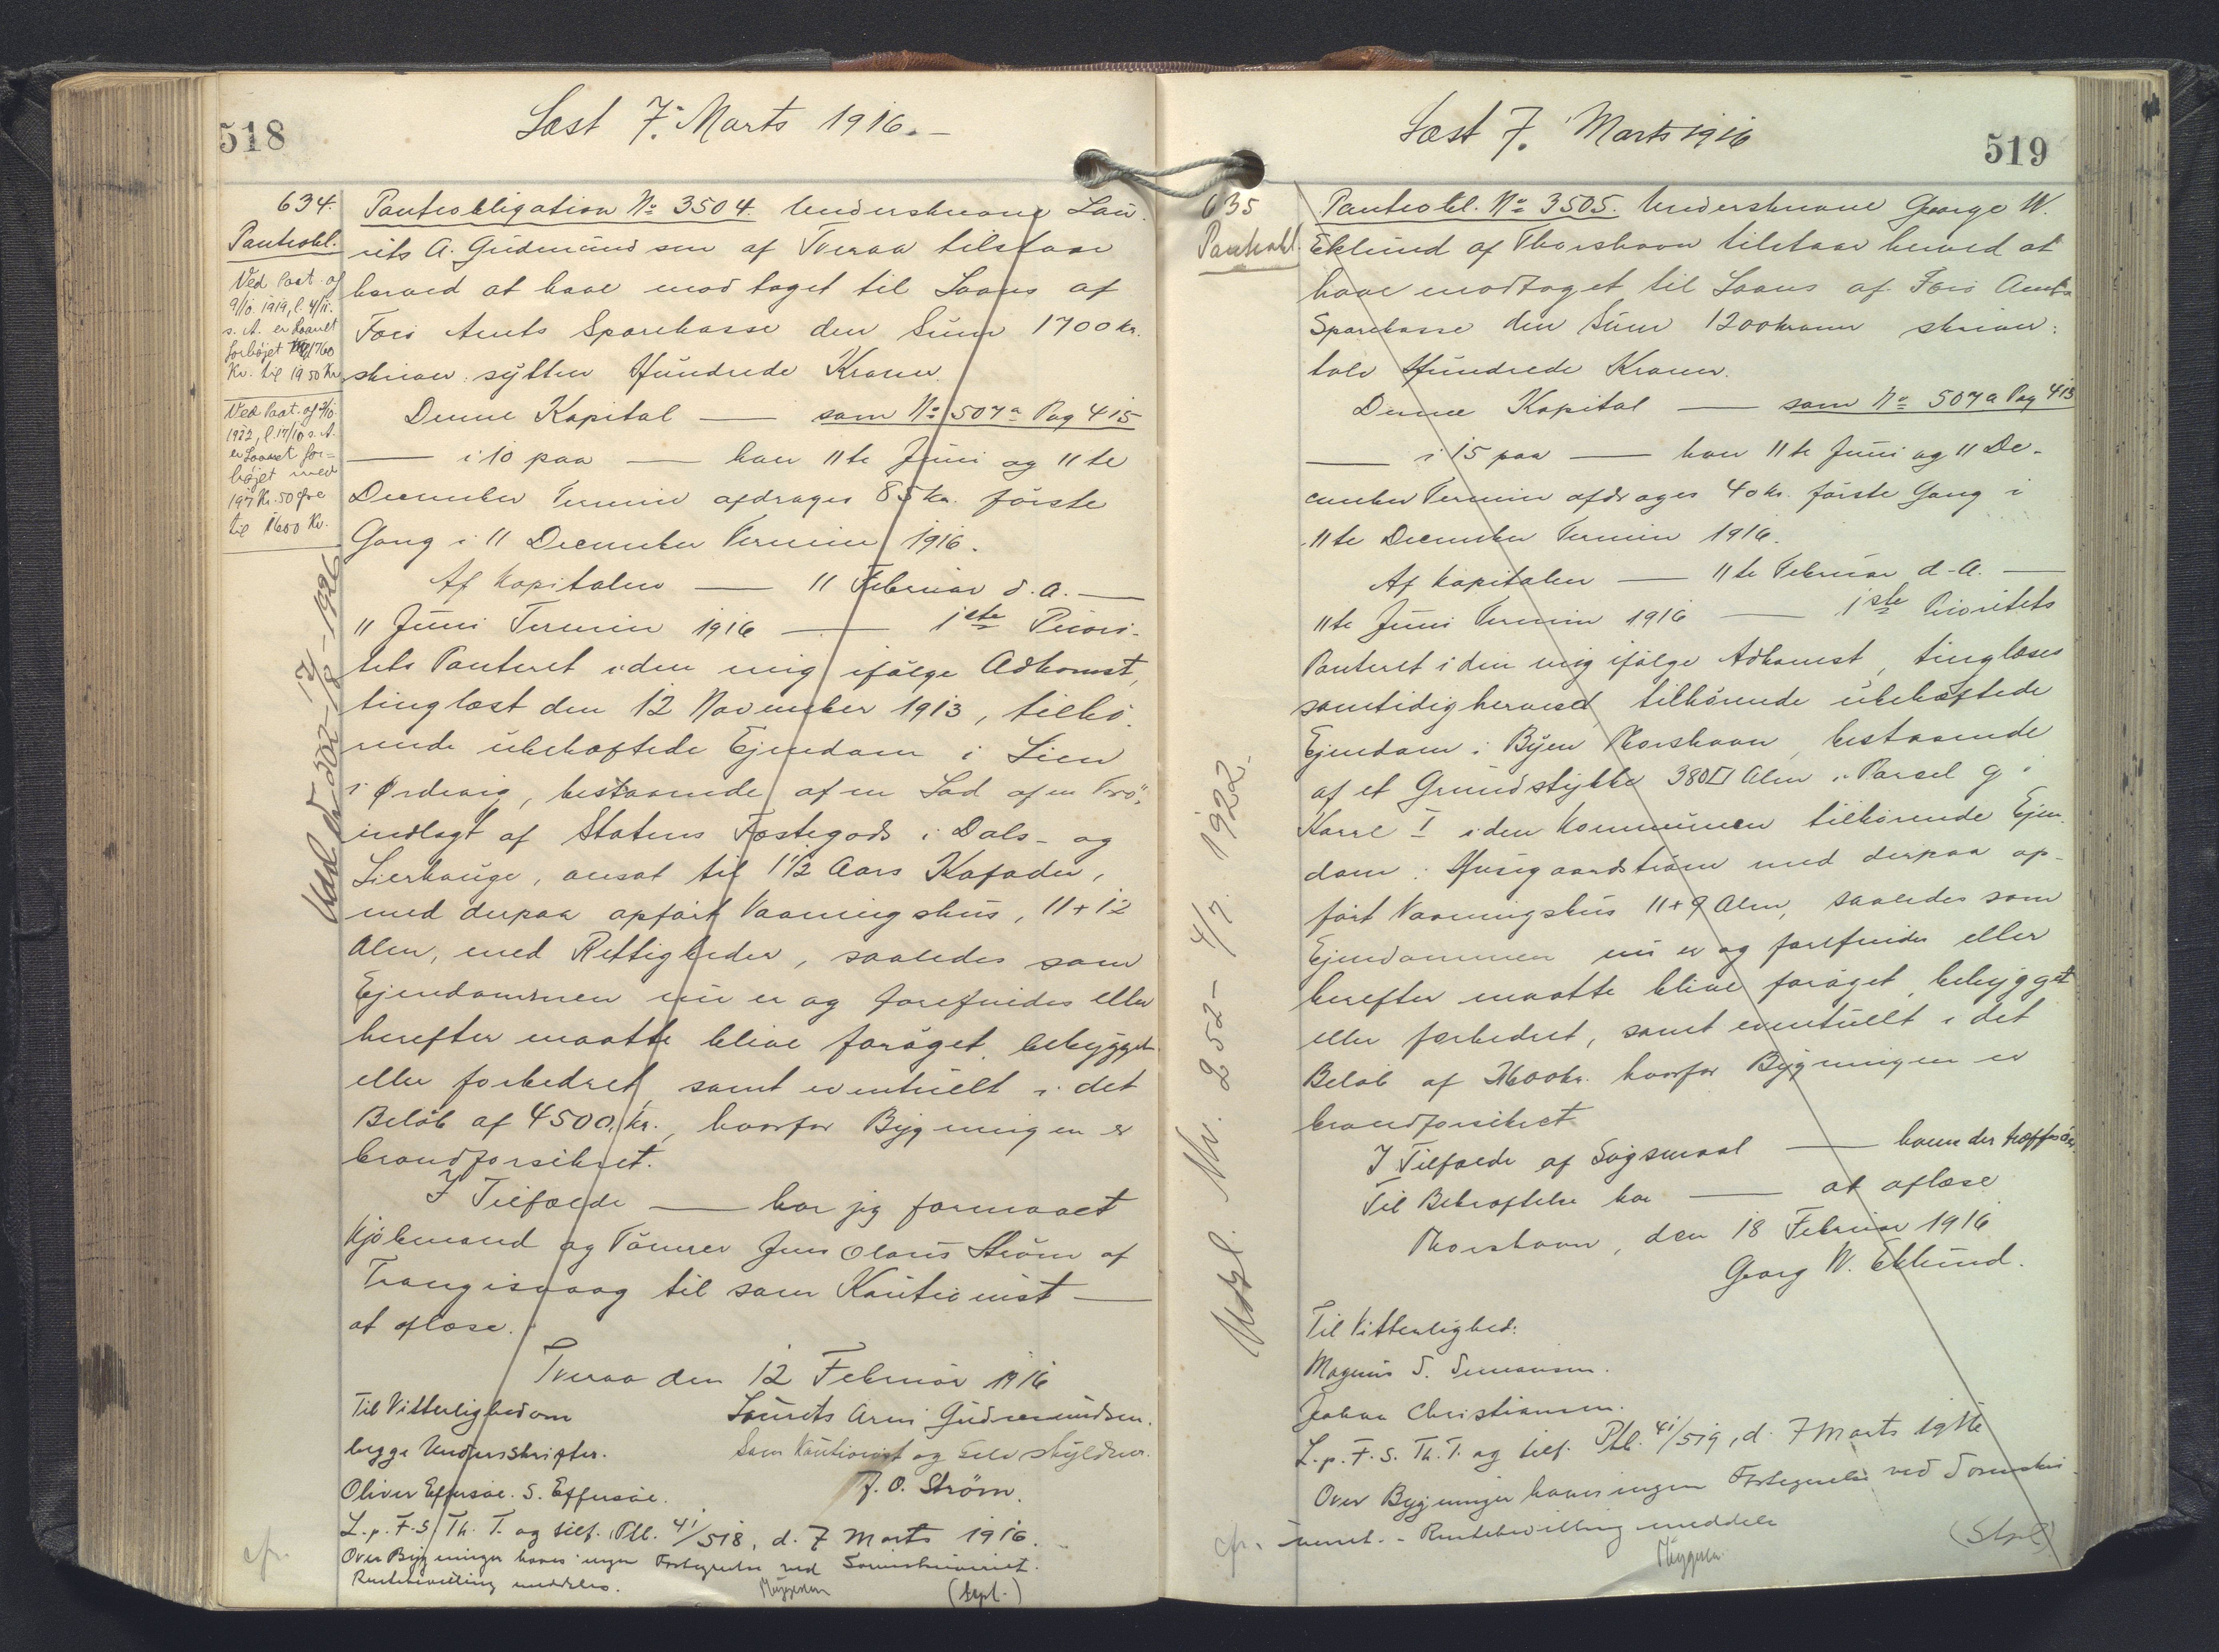 518
Læst 7. Marts 1916.
634.
Panteobl.
Ved Paat. af
9/10 1919, l. 4/11.
s. A. er Laanet
forhøjet 1760
Kr. til 1950 Kr
Ved Paat. af 2/10.
1922, l. 17/10 s. A.
er Laanet for-
højet med
197 Kr. 50 Øre
til 1600 Kr.
17/8 - 1926
Panteobligation No 3504. Underskrevne Lau-
rits A. Gudmundsen af Tveraa tilstaar
herved at have modtaget til Laans af
Færø Amts Sparekasse den Sum 1700 kr.
skriver sytten Hundrede Kroner.
Denne Kapital — som No 507a Pag 415
— i 10 paa — hver 11te Juni og 11te
December Termin afdrages 85 kr. første
Gang i 11 December Termin 1916.
Af Kapitalen — 11 Februar d. A. —
11 Juni Termin 1916 — 1ste Priori-
tets Panteret i den mig ifølge Adkomst,
tinglæst den 12 November 1913, tilhø-
rende ubehæftede Ejendom i Lien
i Ørdevig, bestaaende af en Lod af en Trø,
indlagt af Statens Fæstegods i Dals- og
Lierhauge, ansat til 1 1/2 Aars Kofoder,
med derpaa opført Vaaningshus, 11 + 12
Alen, med Rettigheder, saaledes som
Ejendommen nu er og forefindes eller
herefter maatte blive forøget, bebygget
eller forbedret, samt eventuelt i det
Beløb af 4500 kr., hvorfor Bygningen er
brandforsikret.
I Tilfælde — har jeg formaaet
Kjøbmand og Tømrer Jens Olaus Strøm af
Trangisvaag til som Kautionist —
at aflæse.
Tveraa den 12 Februar 1916
Til Vitterlighed om
Laurits Arni Gudmundsen.
begge Underskrifter.
Som Kautionist og Selvskyldner.
Oliver Effersøe. S. Effersøe.
J. O. Strøm.
L. p. F. S. Th. T. og tilf. Ptl. 41/518, d. 7 Marts 1916.
Over Bygninger haves ingen Fortegnelse ved Sorenskriveriet.
Rentebevilling meddeles.
(Stpl.)
cfr.
Læst 7. Marts 1916
519
635
Panteobl.
Udsl. Nr. 252 - 4/7. 1922.
Panteobl. No 3505. Underskrevne George W.
Eklund af Thorshavn tilstaar herved at
have modtaget til Laans af Færø Amts
Sparekasse den Sum 1200 kroner skriver:
tolv Hundrede Kroner.
Denne Kapital — som No 507a Pag 415
— i 15 paa — hver 11te Juni og 11 De-
cember Termin afdrages 40 kr. første Gang i
11te December Termin 1916.
Af Kapitalen — 11te Februar d. A. —
11te Juni Termin 1916 — 1ste Prioritets
Panteret i den mig ifølge Adkomst, tinglæses
samtidig herved tilhørende ubehæftede
Ejendom i Byen Thorshavn, bestaaende
af et Grundstykke 380 □ Alen i Parcel 9 i
Karré I i den Kommunen tilhørende Ejen-
dom: Husigaardstrøm med derpaa op-
ført Vaaningshus 11 + 9 Alen, saaledes som
Ejendommen nu er og forefindes eller
herefter maatte blive forøget, bebygget
eller forbedret, samt eventuelt i det
Beløb af 2600 kr. hvorfor Bygningen er
brandforsikret.
I Tilfælde af Søgsmaal — kan der træffes
Til Bekræftelse har — at aflæse
Thorshavn, den 18 Februar 1916
Georg W. Eklund.
Til Vitterlighed:
Magnus S. Simonsen.
Johan Christiansen.
L. p. F. S. Th. T. og tilf. Ptl. 41/519, d. 7 Marts 1916
Over Bygninger haves ingen Fortegnelse ved Sorenskri-
veriet. - Rentebevilling meddeles
(Stpl)
cfr.